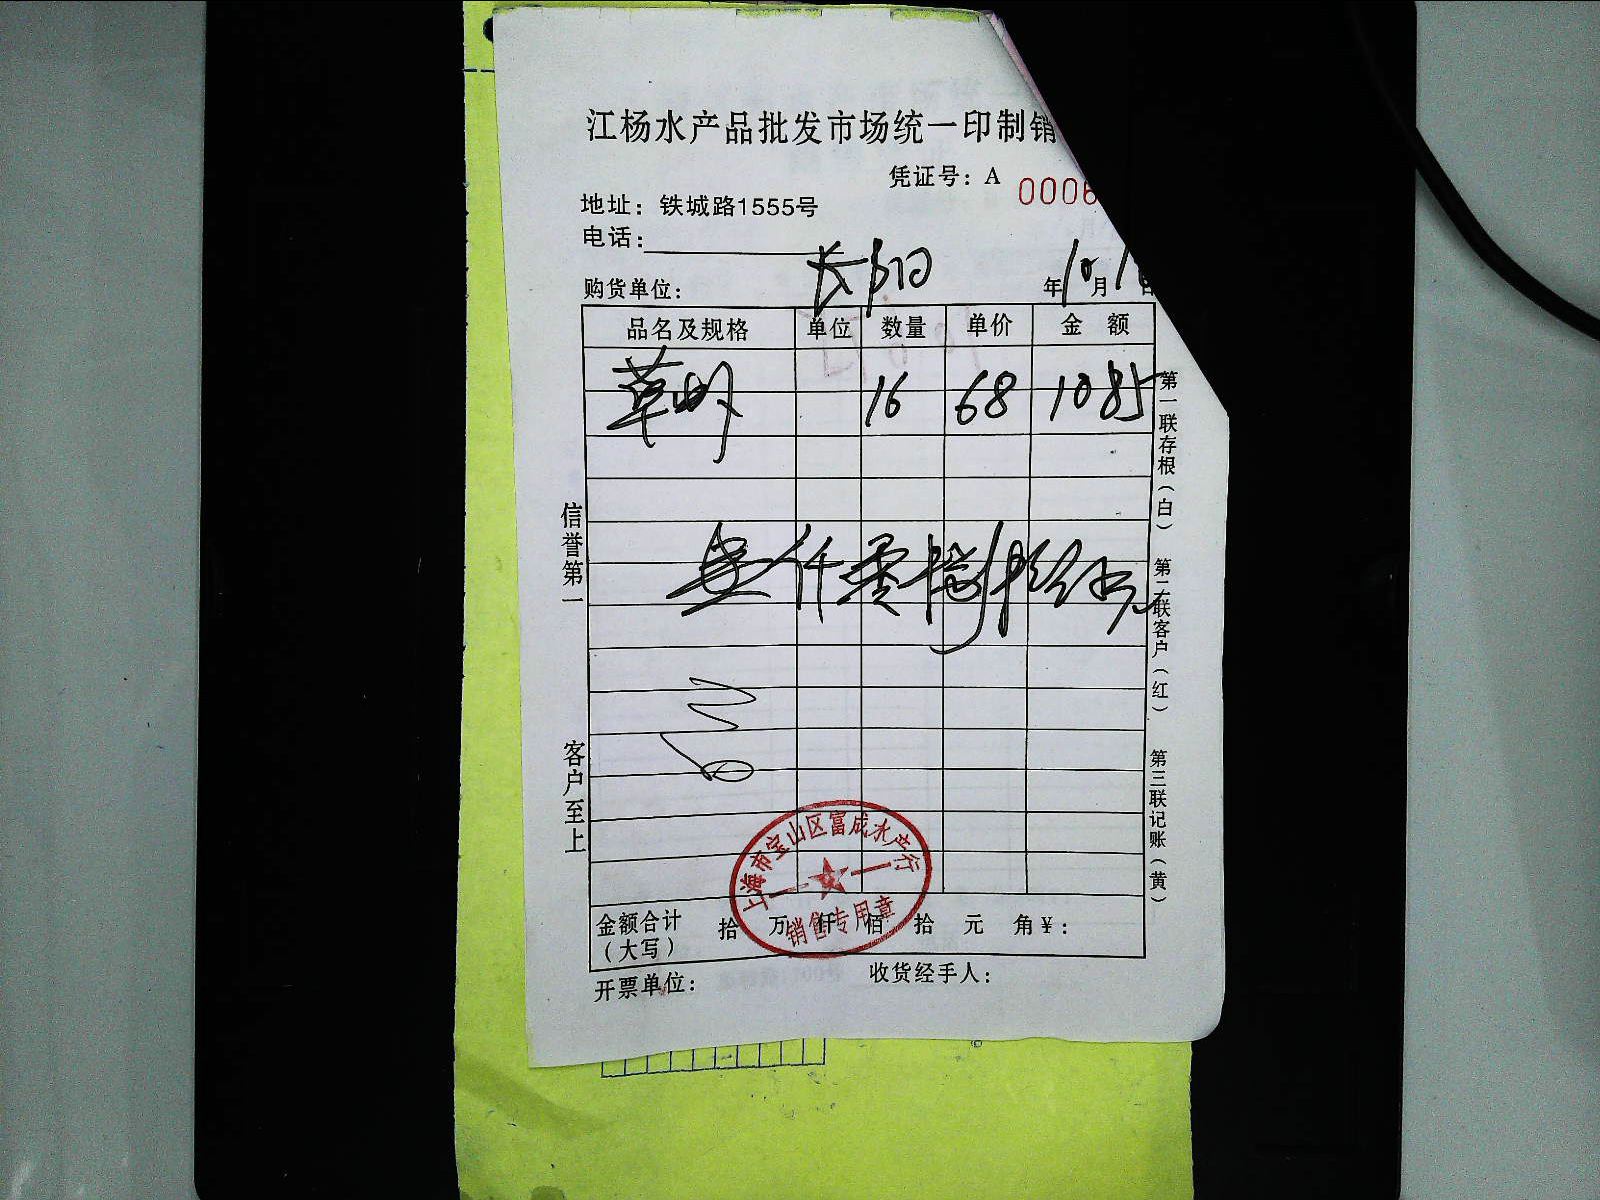 江杨水产品批发市场统一印制销
凭证号：A 0006
地址：铁城路1555号
电话：
购货单位： 长阳 年10月1日
品名及规格 单位 数量 单价 金额
草虾 16 68 1085
壹仟零捌拾伍元
信誉第一
客户至上
第一联存根（白） 第二联客户（红） 第三联记账（黄）
上海市宝山区富成水产行
销售专用章
金额合计（大写） 拾 万 仟 佰 拾 元 角 ¥：
开票单位： 收货经手人：